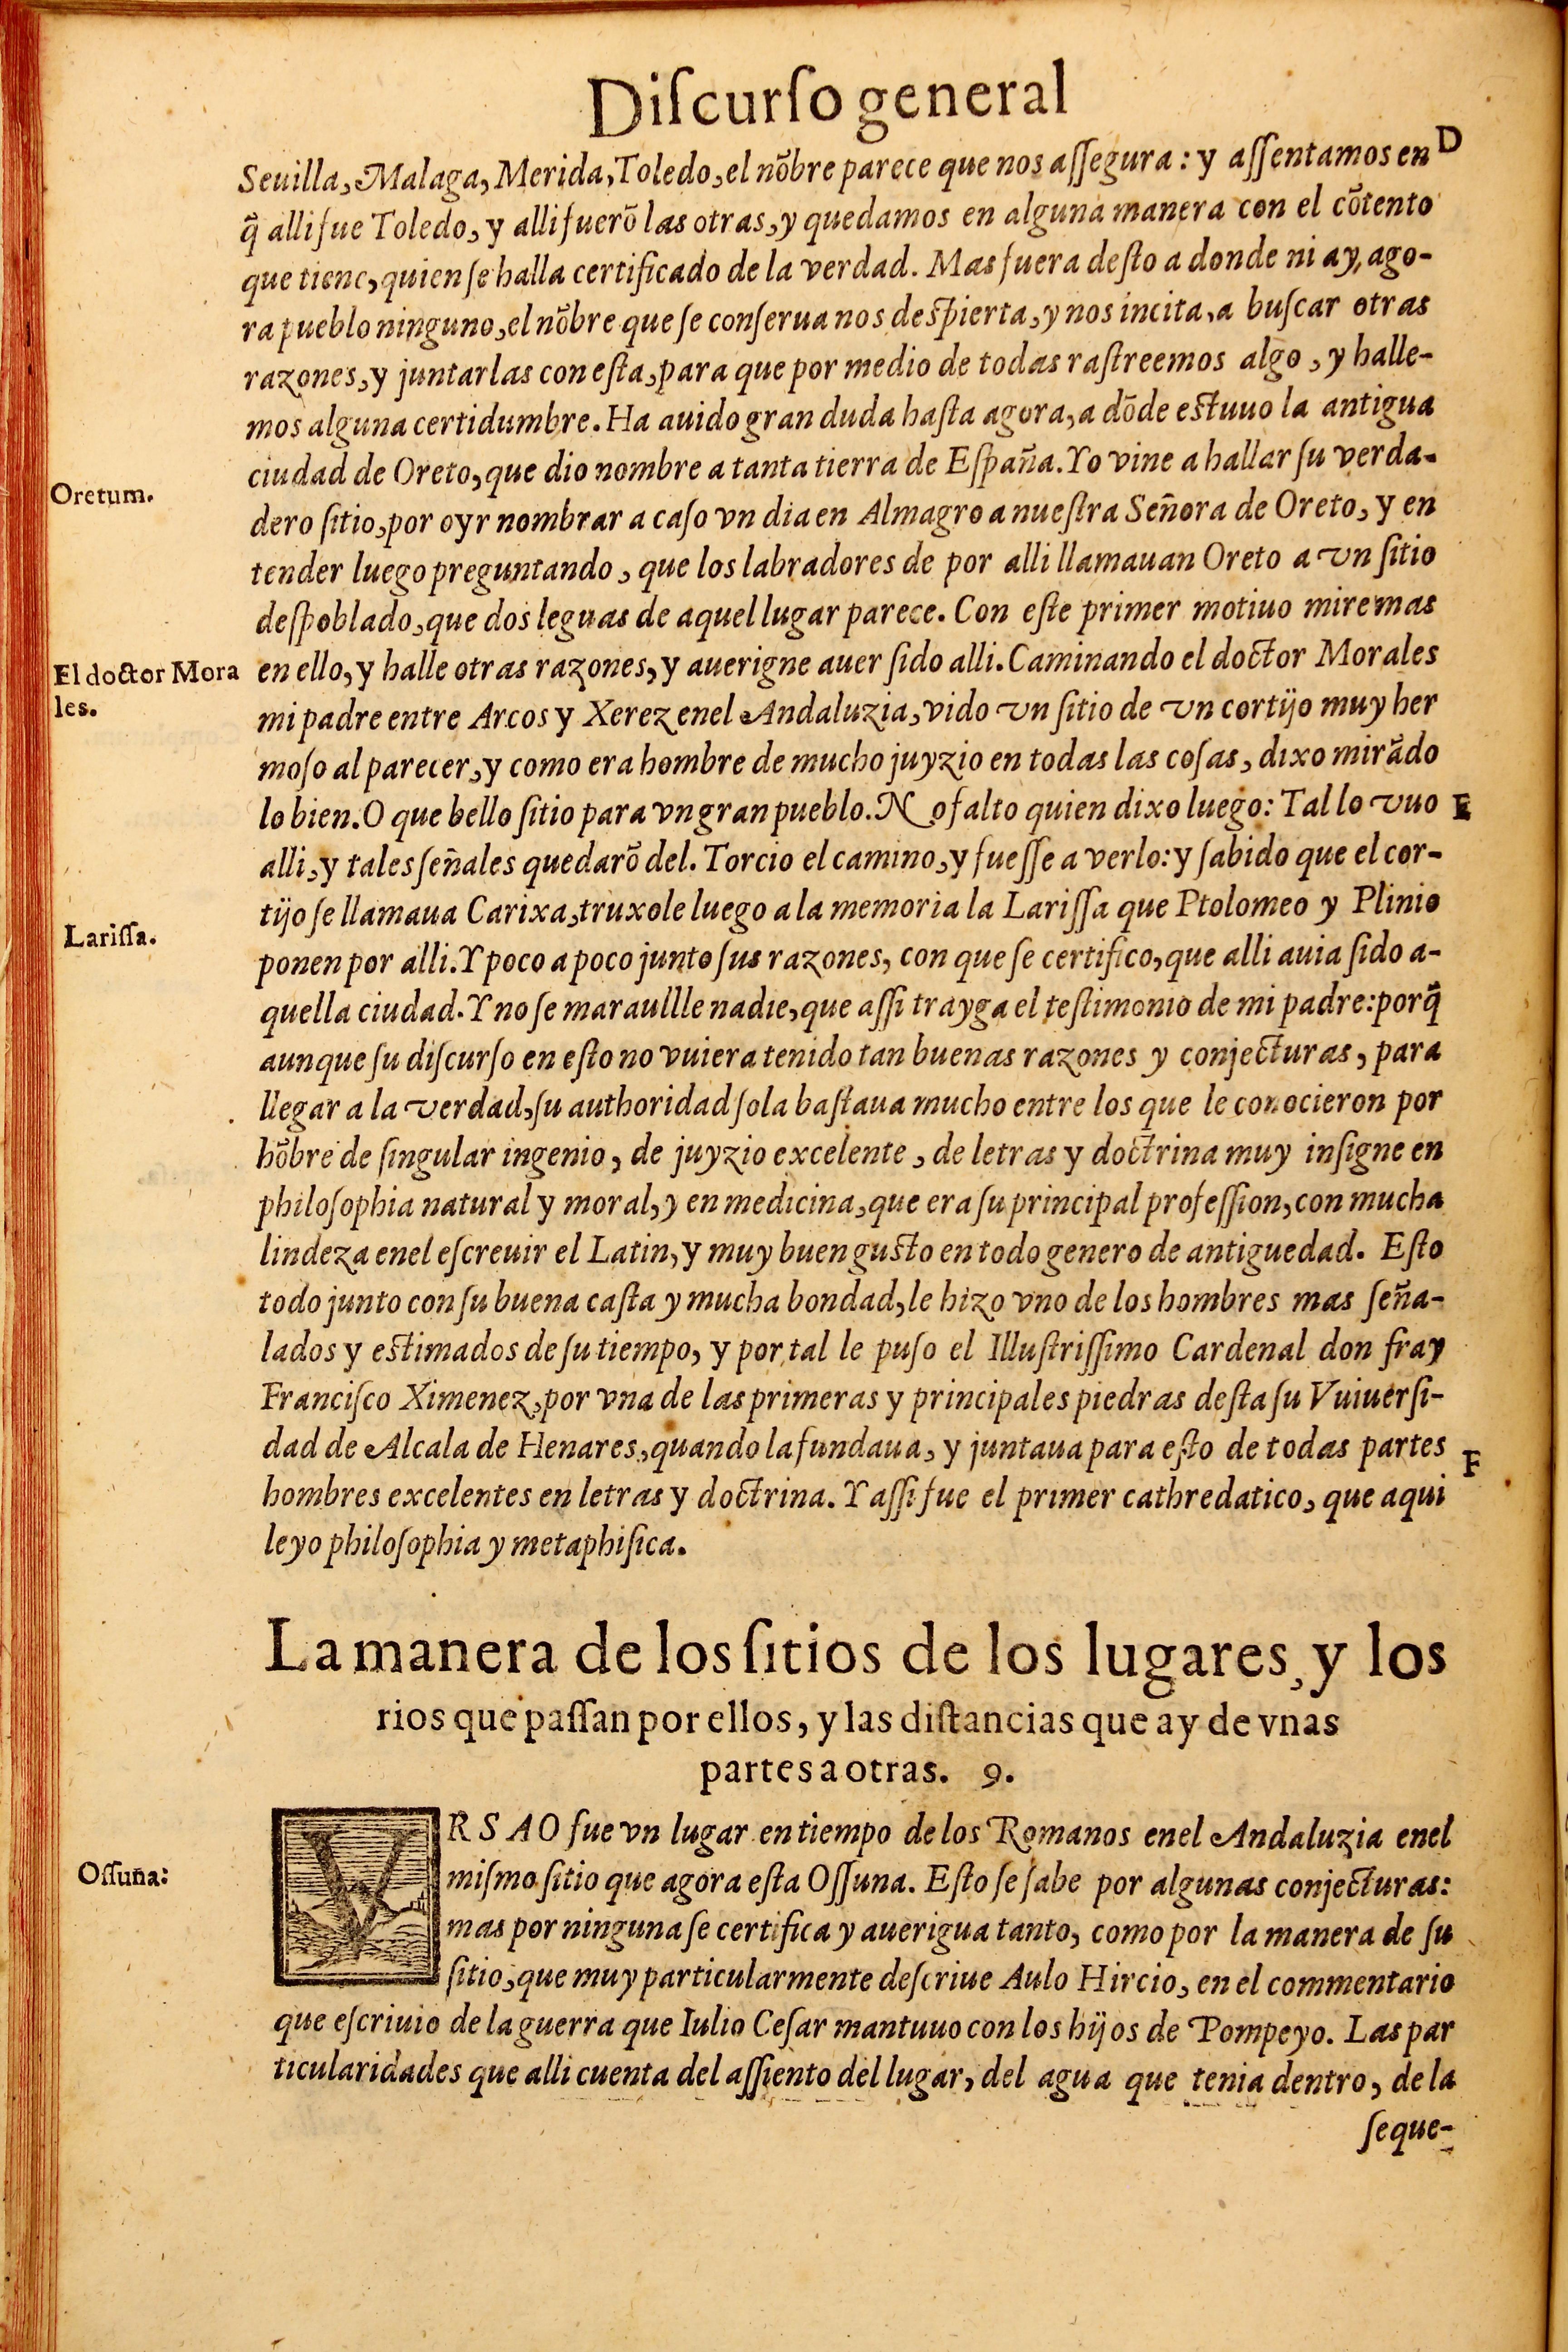 Diſcurſo general
Seuilla, Malaga, Merida, Toledo, el nõbre parece que nos aſſegura: y aſſentamos en D
q̃ alli fue Toledo, y alli fuerõ las otras, y quedamos en alguna manera con el cõtento
que tiene, quien ſe halla certificado de la verdad. Mas fuera deſto a donde ni ay, ago-
ra pueblo ninguno, el nõbre que ſe conſerua nos deſpierta, y nos incita, a buſcar otras
razones, y juntarlas con eſta, para que por medio de todas raſtreemos algo, y halle-
mos alguna certidumbre. Ha auido gran duda haſta agora, a dõde eſtuuo la antigua
ciudad de Oreto, que dio nombre a tanta tierra de Eſpaña. Yo vine a hallar ſu verda-
Oretum.
dero ſitio, por oyr nombrar a caſo vn dia en Almagro a nueſtra Señora de Oreto, y en
tender luego preguntando, que los labradores de por alli llamauan Oreto a vn ſitio
deſpoblado, que dos leguas de aquel lugar parece. Con eſte primer motiuo mire mas
El doctor Mora
les.
en ello, y halle otras razones, y auerigne auer ſido alli. Caminando el doctor Morales
mi padre entre Arcos y Xerez enel Andaluzia, vido vn ſitio de vn cortijo muy her
moſo al parecer, y como era hombre de mucho juyzio en todas las coſas, dixo mirãdo
lo bien. O que bello ſitio para vn gran pueblo. No falto quien dixo luego: Tal lo vuo E
alli, y tales ſeñales quedarõ del. Torcio el camino, y fueſſe a verlo: y ſabido que el cor-
tijo ſe llamaua Carixa, truxole luego a la memoria la Lariſſa que Ptolomeo y Plinio
Lariſſa.
ponen por alli. Y poco a poco junto ſus razones, con que ſe certifico, que alli auia ſido a-
quella ciudad. Y no ſe maraullle nadie, que aſſi trayga el teſtimonio de mi padre: porq̃
aunque ſu diſcurſo en eſto no vuiera tenido tan buenas razones y conjecturas, para
llegar a la verdad, ſu authoridad ſola baſtaua mucho entre los que le conocieron por
hõbre de ſingular ingenio, de juyzio excelente, de letras y doctrina muy inſigne en
philoſophia natural y moral, y en medicina, que era ſu principal profeſſion, con mucha
lindeza enel eſcreuir el Latin, y muy buen guſto en todo genero de antiguedad. Eſto
todo junto con ſu buena caſta y mucha bondad, le hizo vno de los hombres mas ſeña-
lados y eſtimados de ſu tiempo, y por tal le puſo el Illuſtriſſimo Cardenal don fray
Franciſco Ximenez, por vna de las primeras y principales piedras deſta ſu Vuiuerſi-
dad de Alcala de Henares, quando la fundaua, y juntaua para eſto de todas partes F
hombres excelentes en letras y doctrina. Y aſſi fue el primer cathredatico, que aqui
leyo philoſophia y metaphiſica.
La manera de los ſitios de los lugares, y los
rios que paſſan por ellos, y las diſtancias que ay de vnas
partes a otras. 9.
VRSAO fue vn lugar en tiempo de los Romanos enel Andaluzia enel
Oſſuña:
miſmo ſitio que agora eſta Oſſuna. Eſto ſe ſabe por algunas conjecturas:
mas por ninguna ſe certifica y auerigua tanto, como por la manera de ſu
ſitio, que muy particularmente deſcriue Aulo Hircio, en el commentario
que eſcriuio de la guerra que Iulio Ceſar mantuuo con los hijos de Pompeyo. Las par
ticularidades que alli cuenta del aſſiento del lugar, del agua que tenia dentro, de la
ſeque-